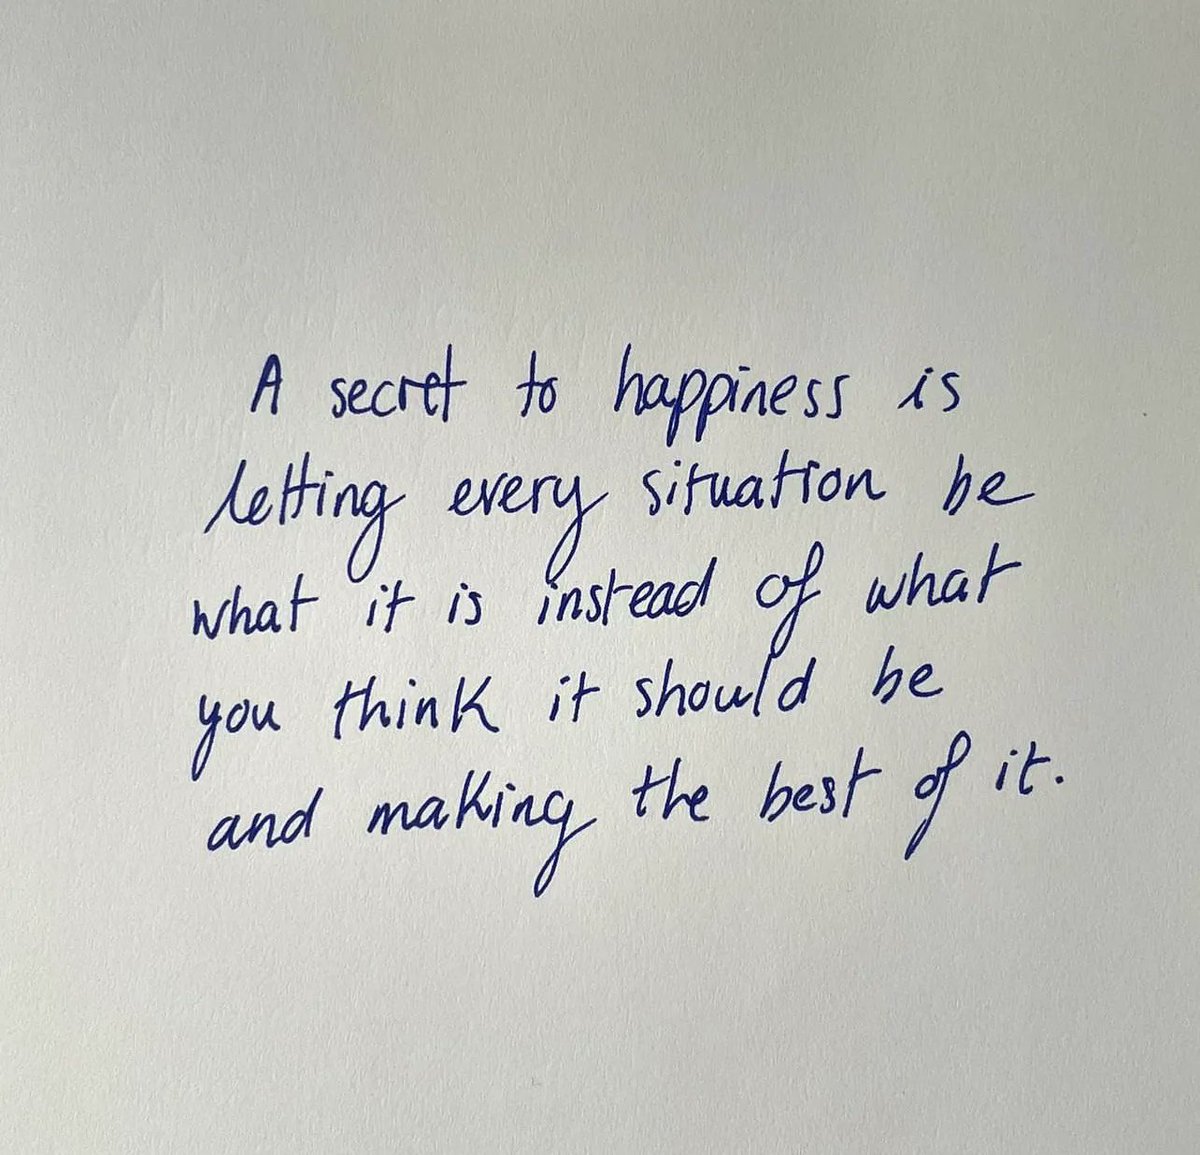 A secret to happiness is
letting every situation be
what it is instead of what
you think it should be
and making the best of it.